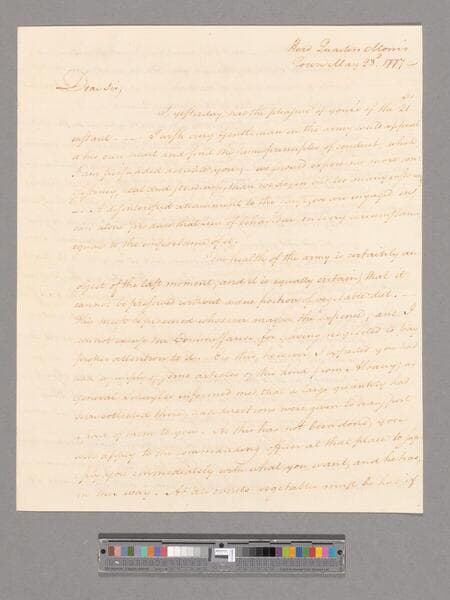 Head Quarters Morris
Town May 23d. 1777
Dear Sir,
I yesterday had the pleasure of yours of the 21
instant. I wish every Gentleman in the army could appeal
to his own heart and find the same principles of conduct, which
I am persuaded actuate you; we should experience more con-
sistency, zeal and steadiness, than we do now but too many
A disinterested attachment to the cause we are engaged in
can alone produce that line of behaviour, in every circumstance
equal to the importance of it.
The health of the army is certainly an
object of the last moment, and it is equally certain, that it
cannot be preserved without a due portion of vegetable diet.
This must be procured whatever may be the expence, and I
cannot excuse the Commissaries, for having neglected to pay
proper attention to it. Ere this, however I expected you had
had a supply of some articles of the kind from Albany; as
General Schuyler informed me, that a large quantity had
been collected there, and directions were given to transport
a part of them to you. As this has not been done, you
will apply to the commanding officer at that place to sup-
ply you immediately with what you want, and he has,
in this way. At all events vegetables must be had if